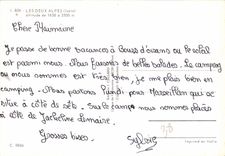 I. 809 - LES DEUX ALPES (Isère)
altitude de 1650 à 3500 m
Chère Maumaune
Je passe de bonne vacances à Bourg d'oisans ou le soleil
est parmi nous. Nous faisons de belles balades. Le camping
ou nous sommes est très bien, je me plais bien en
camping. Nous partons lundi pour Marseillan qui se
situe à côté de sète. Sur la photo nous sommes placés
à côté de Jacqueline Lemaire.
Grosses bises.
Sylvie